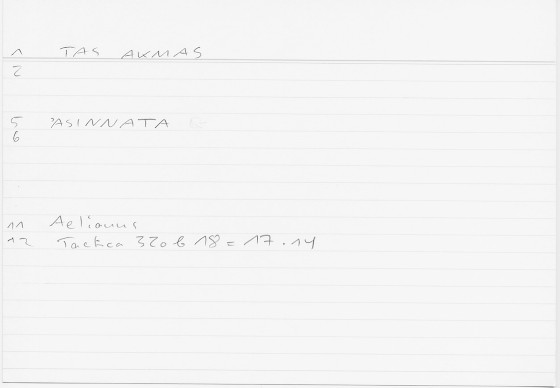 1 TAS AKMAS
2
5 PASINNATA
6
11 Aelianus
12 Tactica 320 b 18 = 17.14